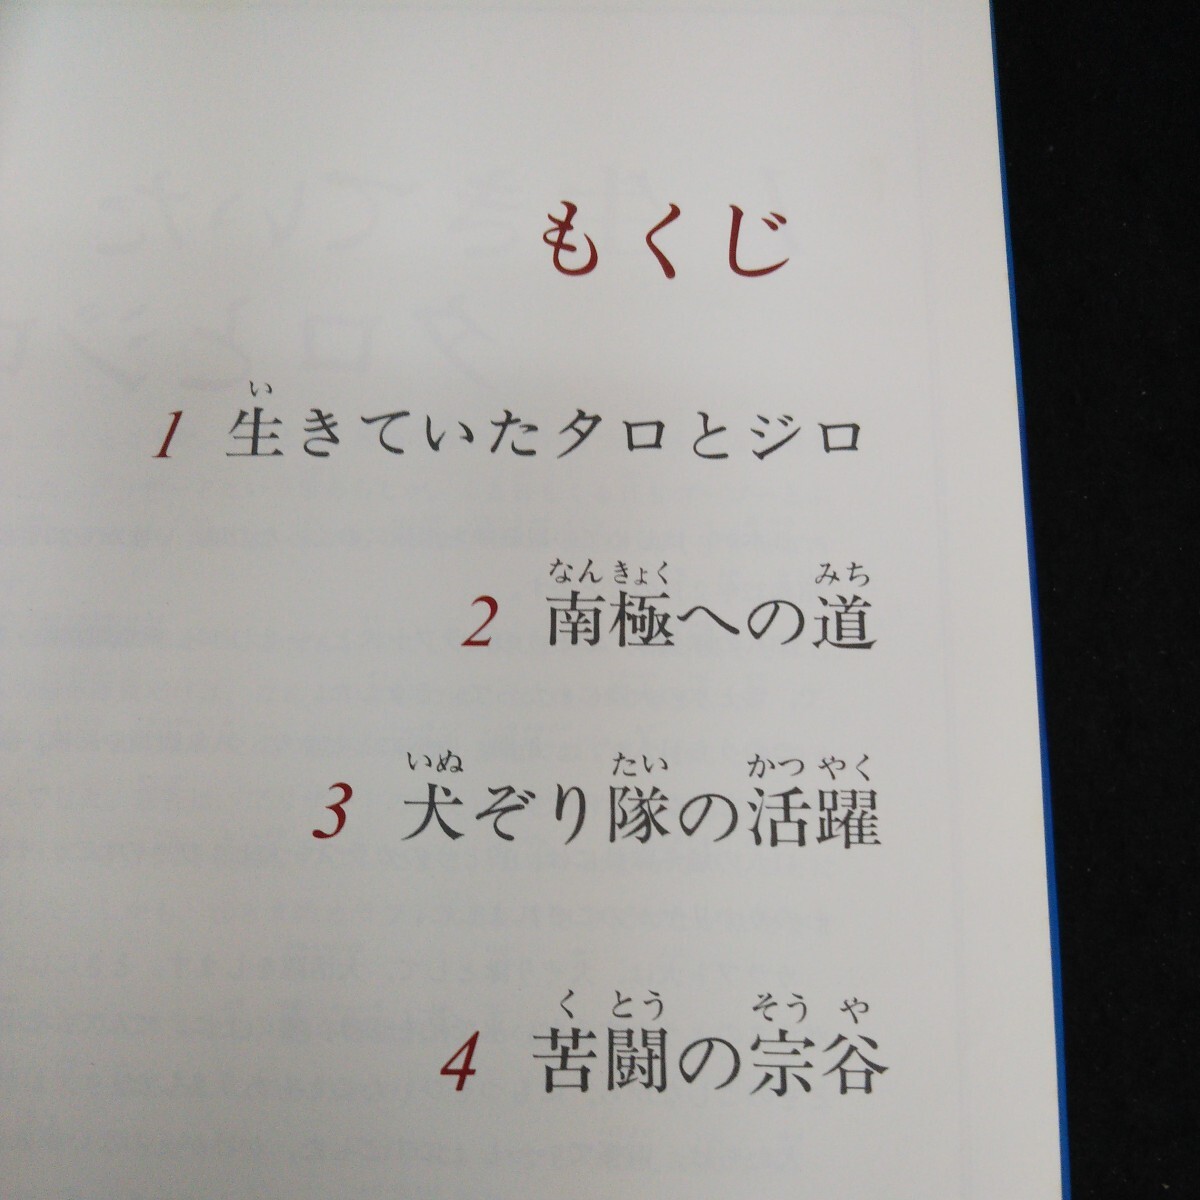 もくじ
1 生きていたタロとジロ
い
2 南極への道
なんきょく みち
3 犬ぞり隊の活躍
いぬ たい かつやく
4 苦闘の宗谷
くとう そうや